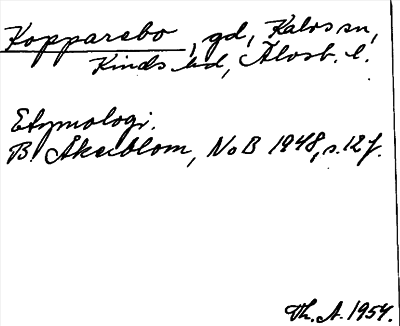 Kopparebo, gd, Kalvs sn,
Kinds hd, Älvsb. l.
Etymologi.
B. Åkerblom, NoB 1948, s. 12 f.
Th. A. 1954.